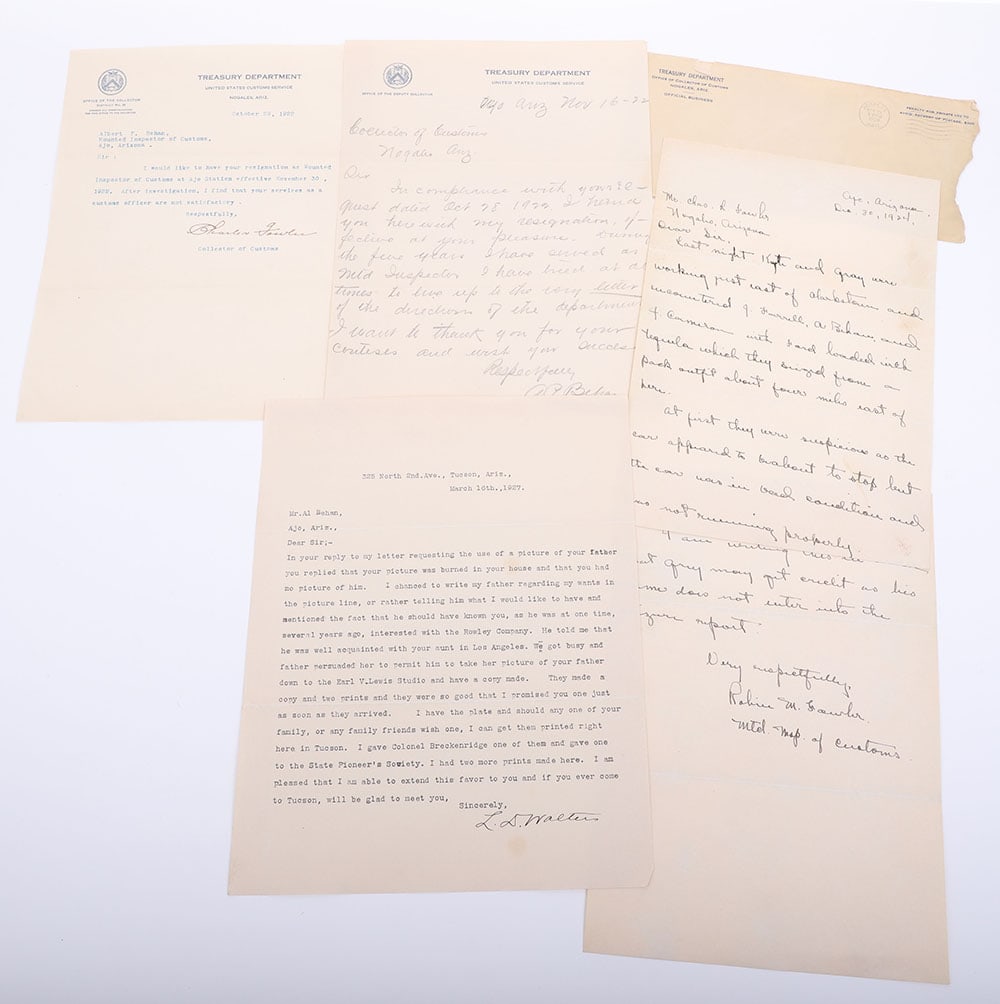 OFFICE OF THE COLLECTOR
TREASURY DEPARTMENT
UNITED STATES CUSTOMS SERVICE
NOGALES, ARIZ.
October 28, 1922
Albert P. Behan,
Mounted Inspector of Customs,
Ajo, Arizona.
Sir:
I would like to have your resignation as Mounted
Inspector of Customs at Ajo Station effective November 30,
1922. After investigation, I find that your services as a
customs officer are not satisfactory.
Respectfully,
Charles Fowler
Collector of Customs
OFFICE OF THE DEPUTY COLLECTOR
TREASURY DEPARTMENT
UNITED STATES CUSTOMS SERVICE
Ajo Ariz Nov 16-22
Collector of Customs
Nogales Ariz.
Sir
In compliance with your re-
quest dated Oct 28 1922 I herew
you herewith my resignation, ef-
fective at your pleasure. During
the five years I have served as
Mtd Inspector I have tried at al
times to live up to the very letter
of the directions of the department
I want to thank you for your
and wish you success
Respectfully
A P Behan
TREASURY DEPARTMENT
OFFICE OF COLLECTOR OF CUSTOMS
NOGALES, ARIZ.
OFFICIAL BUSINESS
PENALTY FOR PRIVATE USE TO
AVOID PAYMENT OF POSTAGE, $300
Ajo, Arizona.
Dec. 30, 1924.
Mr. Chas. R. Fowler
Nogales, Arizona
Dear Sir,
Last night and Gray were
working just east of Clarkstown and
encountered J. Farrell, A Behan, and
J. Cameron with Ford loaded with
tequila which they seized from a
pack outfit about four miles east of
here.
At first they were suspicious as the
car appeared to be about to stop but
the car was in bad condition and
was not running properly.
I am writing this in
that Gray may get credit as his
name does not enter into the
seizure report.
Very respectfully,
Robin M. Fowler.
Mtd. Insp. of Customs.
325 North 2nd.Ave., Tucson, Ariz.,
March 16th.,1927.
Mr.Al Behan,
Ajo, Ariz.,
Dear Sir;-
In your reply to my letter requesting the use of a picture of your father
you replied that your picture was burned in your house and that you had
no picture of him. I chanced to write my father regarding my wants in
the picture line, or rather telling him what I would like to have and
mentioned the fact that he should have known you, as he was at one time,
several years ago, interested with the Rowley Company. He told me that
he was well acquainted with your aunt in Los Angeles. We got busy and
father persuaded her to permit him to take her picture of your father
down to the Earl V.Lewis Studio and have a copy made. They made a
copy and two prints and they were so good that I promised you one just
as soon as they arrived. I have the plate and should any one of your
family, or any family friends wish one, I can get them printed right
here in Tucson. I gave Colonel Breckenridge one of them and gave one
to the State Pioneer's Society. I had two more prints made here. I am
pleased that I am able to extend this favor to you and if you ever come
to Tucson, will be glad to meet you,
Sincerely,
L. D. Walters